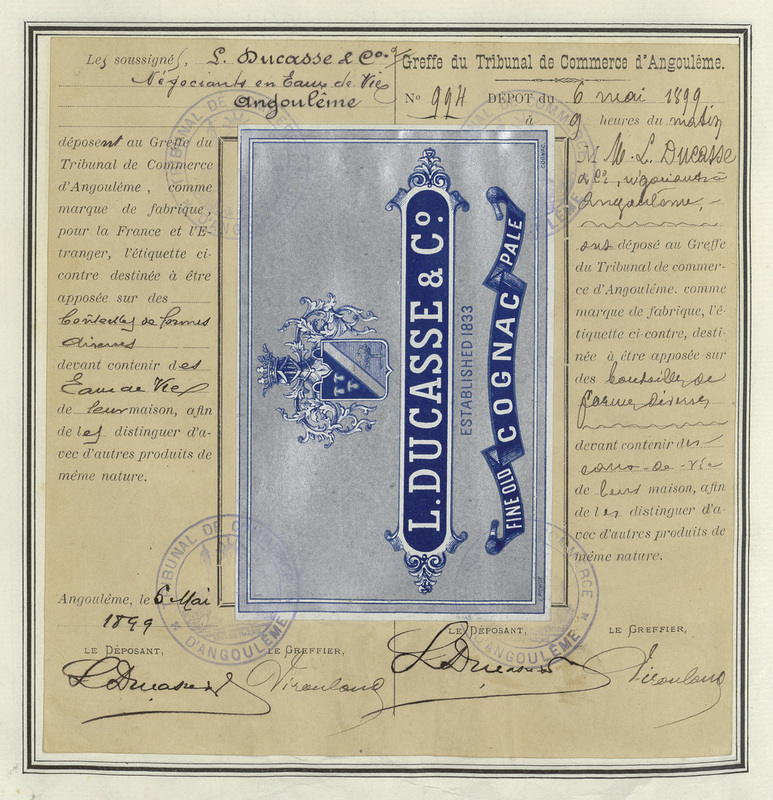 Les soussignés, L. Ducasse & Co.
Négociants en Eaux de Vie
Angoulême
déposent au Greffe du
Tribunal de Commerce
d'Angoulême, comme
marque de fabrique,
pour la France et l'É-
tranger, l'étiquette ci-
contre destinée à être
apposée sur des
bouteilles de formes
diverses
devant contenir des
Eaux de Vie
de leur maison, afin
de les distinguer d'a-
vec d'autres produits de
même nature.
Angoulême, le 6 Mai
1899
LE DÉPOSANT,
LE GREFFIER,
L Ducasse
TRIBUNAL DE COMMERCE
D'ANGOULÊME
L. DUCASSE & Co.
ESTABLISHED 1833
FINE OLD COGNAC PALE
COGNAC.
Greffe du Tribunal de Commerce d'Angoulême.
No 994 DÉPOT du 6 mai 1899
à 9 heures du matin
M. M. L. Ducasse
& Co, négociants à
Angoulême,
ont déposé au Greffe
du Tribunal de commer-
ce d'Angoulême. comme
marque de fabrique, l'é-
tiquette ci-contre, desti-
née à être apposée sur
des bouteilles de
formes diverses
devant contenir des
eaux-de-vie
de leur maison, afin
de les distinguer d'a-
vec d'autres produits de
même nature.
LE DÉPOSANT,
LE GREFFIER,
L Ducasse